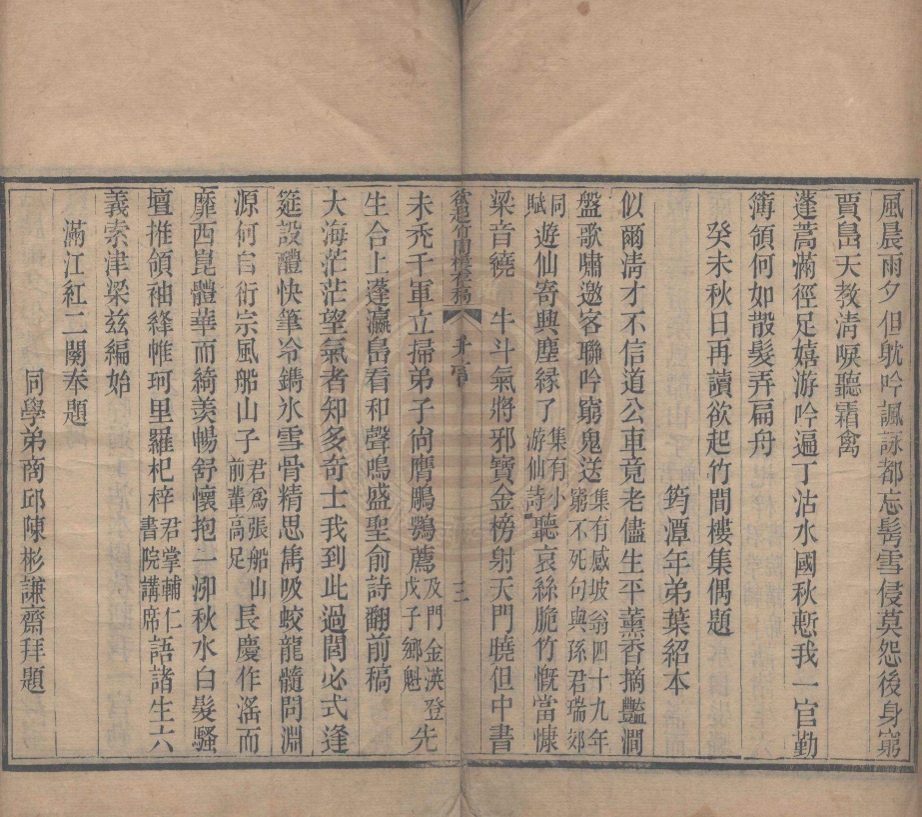 風晨雨夕但躭吟諷詠都忘髩雪侵莫怨後身窮
賈島天教淸唳聽霜禽
蓬蒿滿徑足嬉游吟遍丁沽水國秋慙我一官勤
簿領何如散髮弄扁舟
癸未秋日再讀欲起竹間樓集偶題
筠潭年弟葉紹本
似爾淸才不信道公車竟老儘生平薰香摘豔澗
盤歌嘯邀客聯吟窮鬼送集有感坡翁四十九年窮不死句與孫君瑞郊
同賦遊仙寄興塵緣了集有小游仙詩聽哀絲脆竹慨當慷
梁音繞 牛斗氣將邪寶金榜射天門曉但中書
欲起竹間樓存稿 弁言 三
未禿千軍立掃弟子尙膺鵬鶚薦及門金漢登戊子鄉魁先
生合上蓬瀛島看和聲鳴盛聖俞詩翻前稿
大海茫茫望氣者知多奇士我到此過閭必式逢
筵設醴快筆冷鐫氷雪骨精思雋吸蛟龍髓問淵
源何自衍宗風船山子君爲張船山前輩高足長慶作滛而
靡西崑體華而綺羨暢舒懷抱一泖秋水白髮騷
壇推領袖絳帷珂里羅杞梓君掌輔仁書院講席語諸生六
義索津梁茲編始
滿江紅二闋奉題
同學弟商邱陳彬謙齋拜題